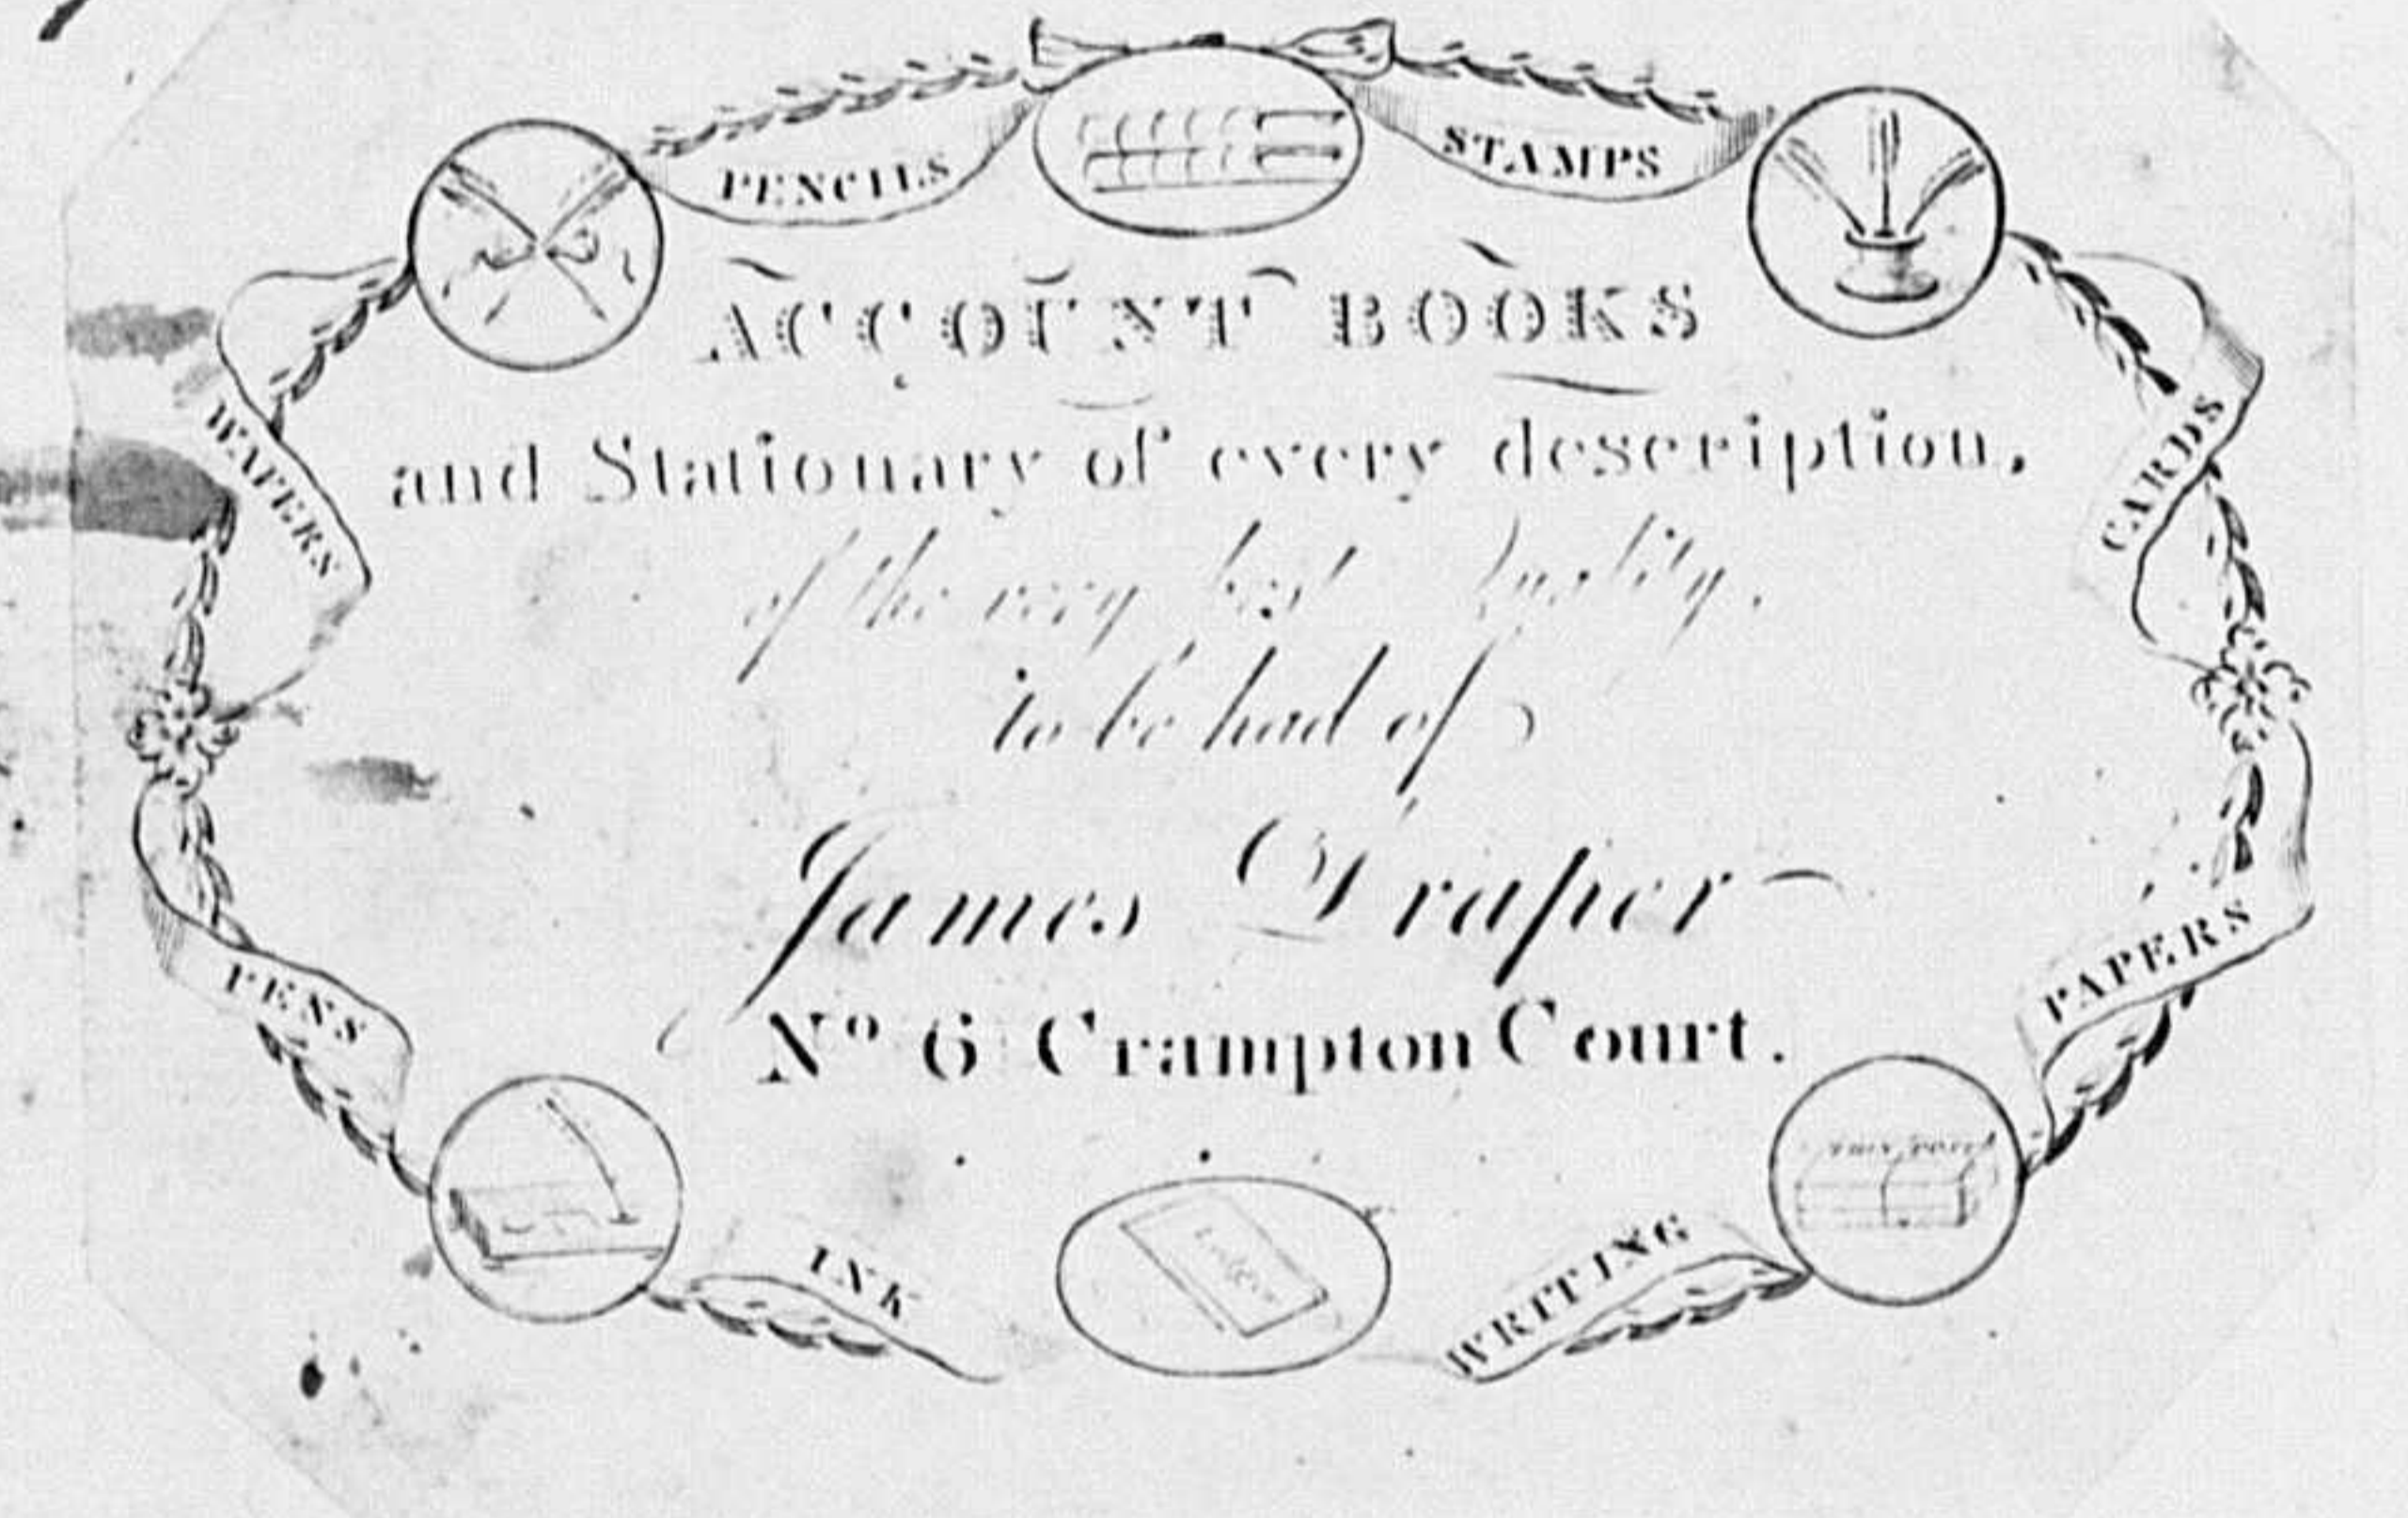 PENCILS
STAMPS
WAFERS
CARDS
ACCOUNT BOOKS
and Stationary of every description,
of the very best Quality,
to be had of
James Draper
No 6 Crampton Court.
PENS
PAPERS
INK
Ledger
WRITING